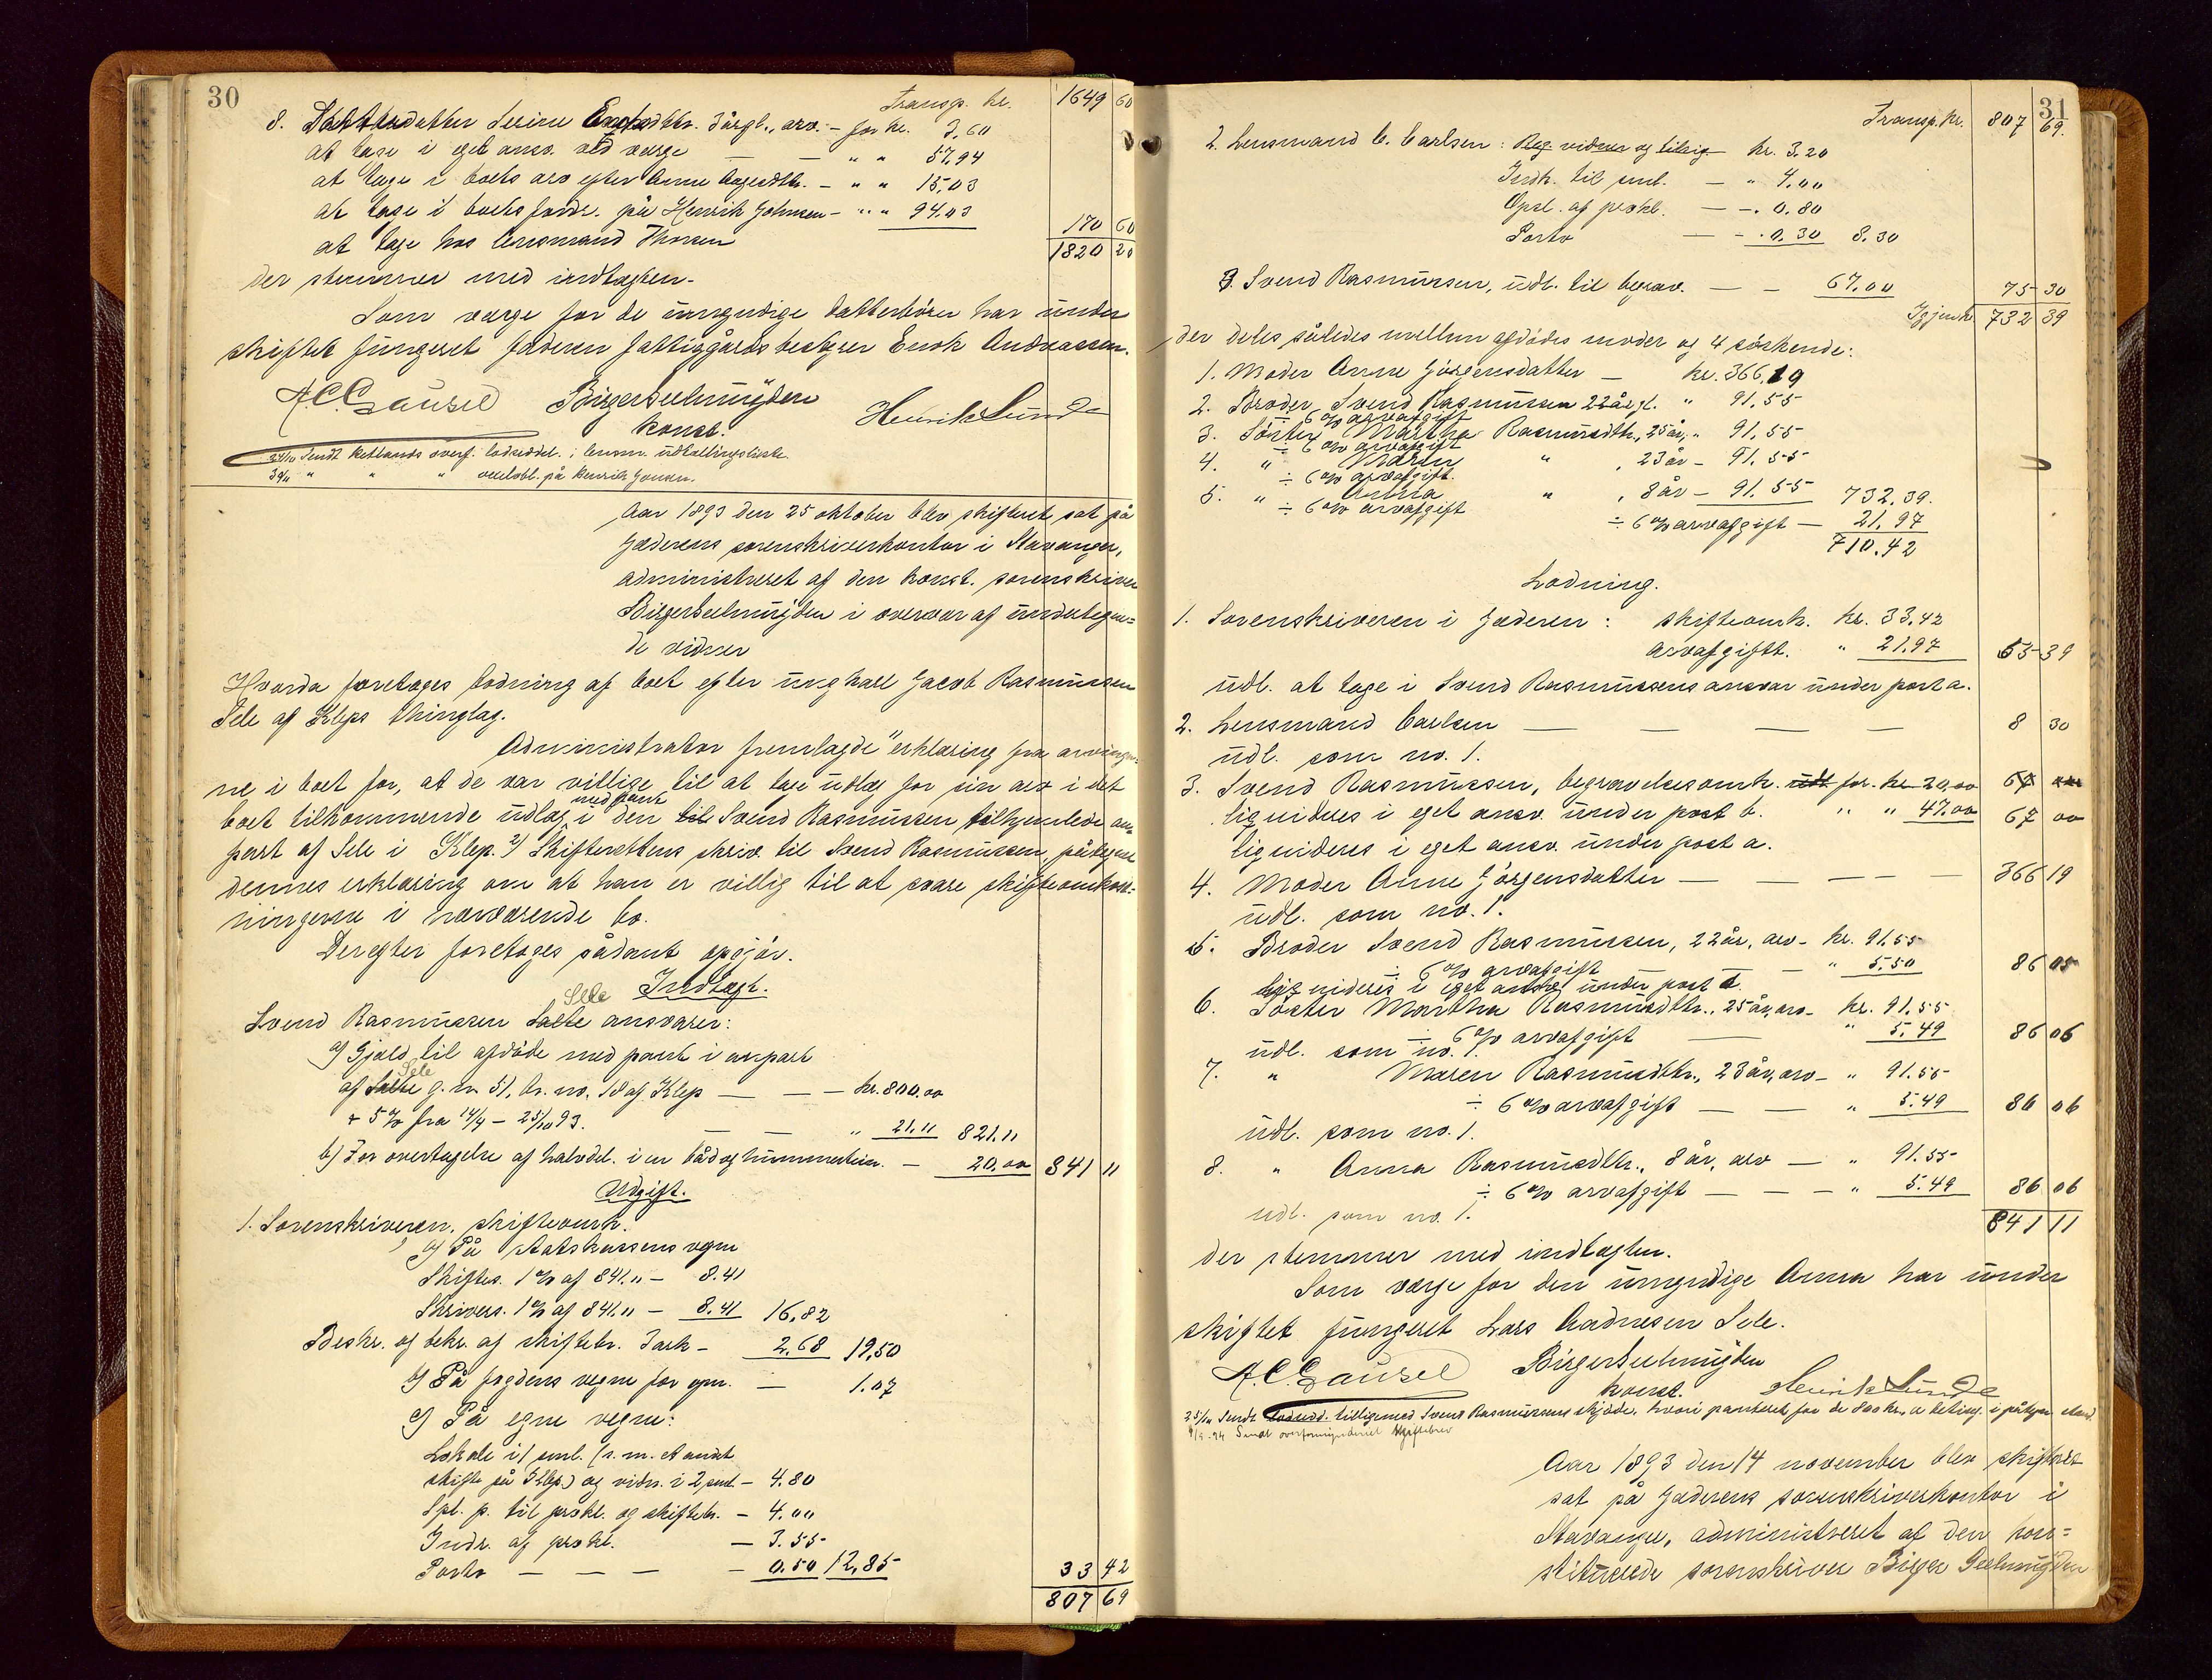 30
Transp. kr. 1649 60
8. Datterdatter Serine Enoksdtr. 3årgl., arv. – for kr. 3,60
at tage i eget ansv. ved værge — — " " 57,94
at tage i boets arv efter Anne Aagesdtr. – " " 15,03
at tage i boets fordr. på Henrik Johnsen – " " 94,03
170 60
at tage hos lensmand Thorsen
1820 20
der stemmer med indtægten.
Som værge for de umyndige datterbörn har under
skiftet fungeret faderen fattiggårdsbestyrer Enok Andreassen.
A.C. Gausel Birger Seehuusen Henrik Lunde
konst.
Aar 1893 den 25 oktober blev skifteret sat på
Jæderens sorenskriverkontor i Stavanger,
administreret af den konst. sorenskriver
i overvær af undertegne=
de vidner
Hvorda foretoges lodning af boet efter ungkarl Jacob Rasmussen
Sele af Kleps thinglag.
Administrator fremlagde 1) erklæring fra arvinger=
ne i boet for, at de var villige til at tage udlæg for sin arv i det
boet tilkommende udlæg med pant i den til Svend Rasmussen tilhjemlede an=
part af Sele i Klep. 2) Skifterettens skriv. til Svend Rasmussen, påtegnet
dennes erklæring om at han er villig til at svare skifteomkost=
ningerne i nærværende bo.
Derefter foretoges sådant opgjör.
Indtægt.
Svend Rasmussen Salte Sele ansvarer:
a) Gjæld til afdöde med pant i anpart
af Salte Sele g. nr. 51, br. no. 18 af Klep — — — kr. 800.00
+ 5 % fra 14/4 – 25/10 93. — — " 21.11 821.11
b) For overtagelse af halvdel. i en båd og hummertein. – 20.00 841 11
Udgift.
1. Sorenskriveren, skifteomk.
a) På statskassens vegne
Skiftes. 1 % af 841.11 – 8.41
Skrivers. 1 % af 841.11 – 8.41 16,82
Beskr. og bekr. af skiftebr. 3 ark – 2,68 19,50
b) På fogdens vegne for opn. — 1.07
c) På egne vegne:
Lokale i 1 saml. (s. m. et andet
skifte på Klep) og vidn. i 2 saml. – 4.80
Spl. p. til prokl. og skiftebr. – 4.00
Indr. af prokl. — 3.55
Porto — — — – 0.50 12,85 33 42
807 69
31
Transp. kr. 807 69.
2. Lensmand C. Carlsen: Reg. vidner og tilsig. kr. 3.20
Indk. til saml. — " 4.00
Opsl. af prokl. — – . 0.80
Porto — – . 0.30 8.30
3. Svend Rasmussen, udl. til begrav. — – 67.00 75 30
Igjenh. 732 39
der deles således mellem afdödes moder og 4 söskende:
1. Moder Anne Jörgensdatter — kr. 366.19
2. Broder Svend Rasmussen 22 årgl. " 91.55
÷ 6 % arvafgift
3. Söster Martha Rasmusdtr., 25 år, " 91,55
÷ 6 % arvafgift
4. " Maren " , 23 år – 91.55
÷ 6 % arvafgift.
5. " Anna " , 8 år – 91.55 732,39.
÷ 6 % arvafgift
÷ 6 % arvafgift — 21,97
710,42
Lodning.
1. Sorenskriveren i Jæderen: skifteomk. kr. 33,42
arvafgift. " 21,97 55 39
udl. at tage i Svend Rasmussens ansvar under post a.
2. Lensmand Carlsen — — — — 8 30
udl. som no. 1.
3. Svend Rasmussen, begravelsesomk. udl for. kr. 20,00
liquideres i eget ansv. under post b. " " 47.00 67 00
liquideres i eget ansv. under post a.
4. Moder Anne Jörgensdatter — — — — 366 19
udl. som no. 1.
5. Broder Svend Rasmussen, 22 år, arv – kr. 91.55
÷ 6 % arvafgift — — " 5.50 86 05
liquideres i eget ansvar under post a.
6. Söster Martha Rasmusdtr., 25 år, arv – kr. 91.55
÷ 6 % arvafgift — " 5.49 86 06
udl. som no. 1.
7. " Maren Rasmusdtr., 23 år, arv – " 91.55
÷ 6 % arvafgift — — " 5.49 86 06
udl. som no. 1.
8. " Anna Rasmusdtr., 8 år, arv — " 91.55
÷ 6 % arvafgift — — – " 5.49 86 06
udl. som no. 1.
841 11
der stemmer med indtægten.
Som værge for den umyndige Anna har under
skiftet fungeret Lars Aadnesen Sele.
A.C. Gausel
konst. Henrik Lunde
25/10 Sendt tilligemed Svend Rasmussens skjöde, hvori panteret for de 800 kr.
Aar 1893 den 14 november blev skifteret
sat på Jæderens sorenskriverkontor i
Stavanger, administreret af den kon=
stituerede sorenskriver Birger